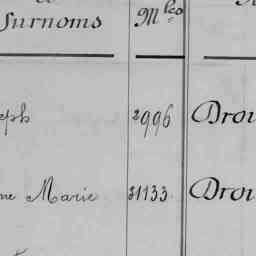 Surnoms Mles
eph 2996 Drou
ne Marie 31133 Drou